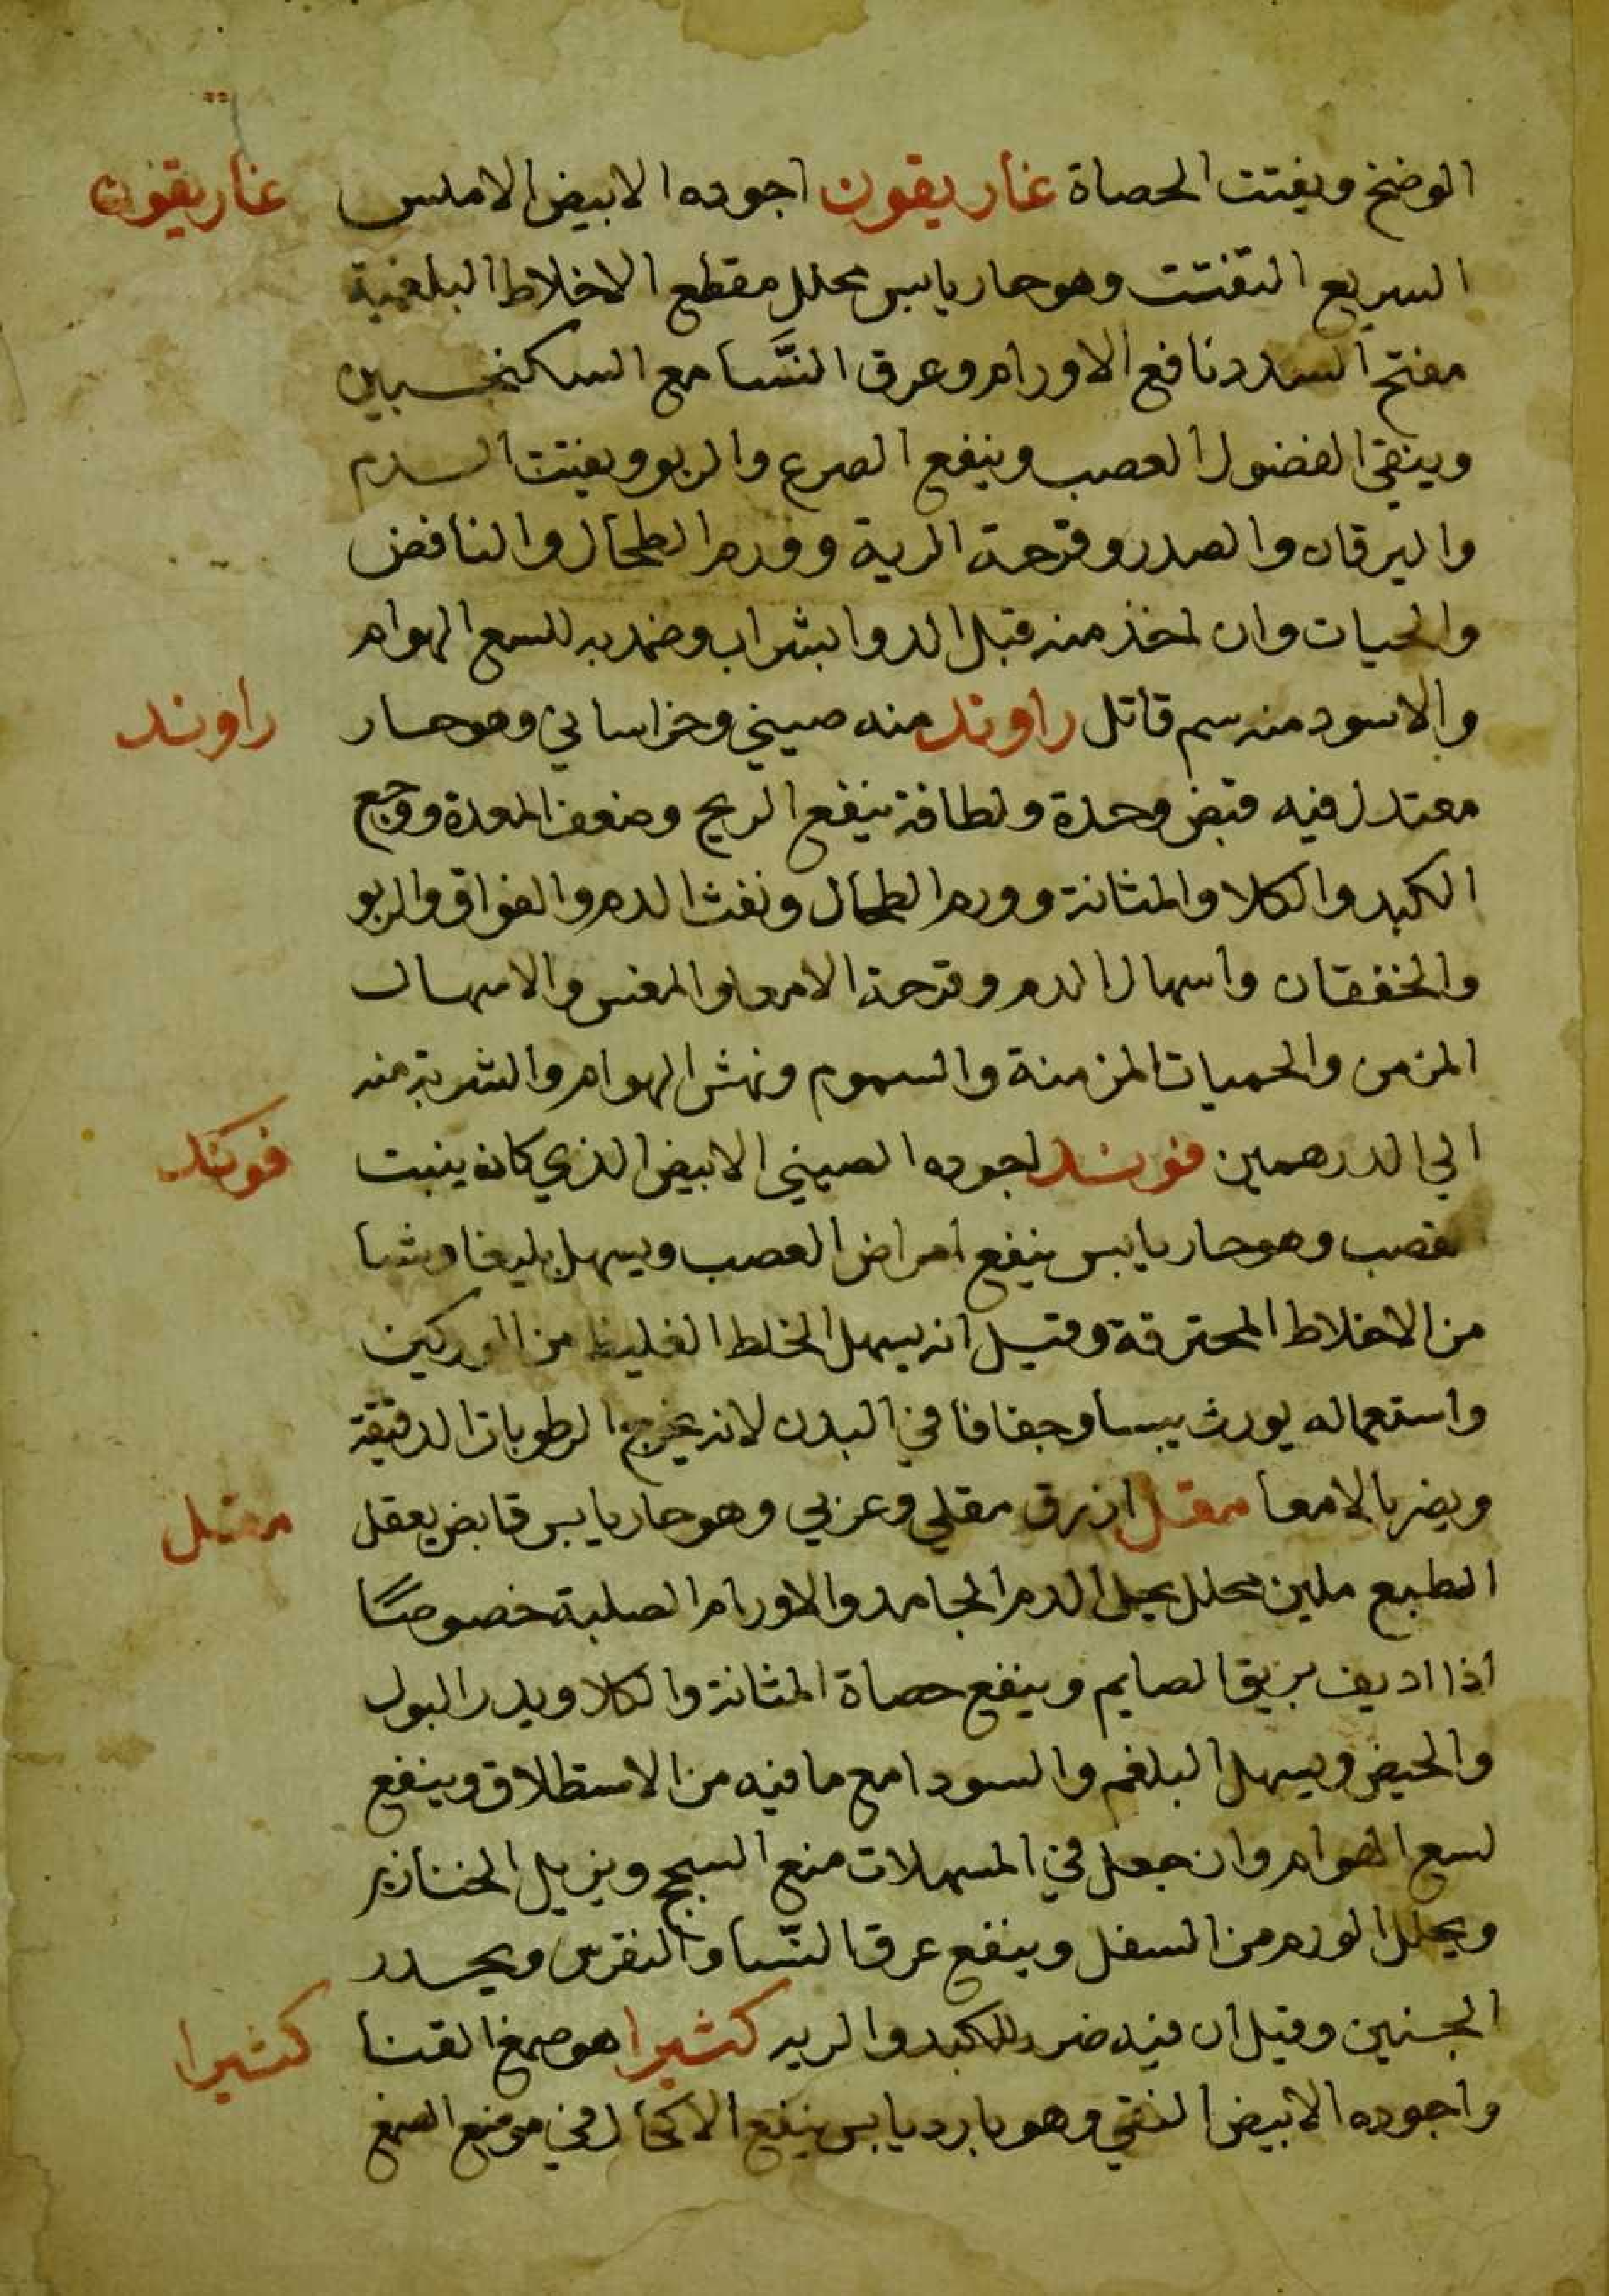 الوضخ ويفتت الحصاة غاريقون اجوده الابيض الاملس
غاريقون
السريع التفتت وهو حار يابس محلل مقطع الاخلاط البلغمية
مفتح السدد نافع الاورام وعرق النَّسا مع السكنجبين
وينقي الفضول العصب وينفع الصرع والربو ويفتت السدم
واليرقان والصدر وقرحة الرية وورم الطحال والنافض
والحيات وان اخذ منه قبل الدوا بشراب وضمد به للسع الهوام
والاسود منه سم قاتل راوند منه صيني وخراساني وهو حار
راوند
معتدل فيه قبض وحدة ولطافة ينفع الريح وضعف المعدة ووجع
الكبد والكلا والمثانة وورم الطحال ونفث الدم والفواق والربو
والخفقان واسهال الدم وقرحة الامعا والمغس والاسهال
المزمن والحميات المزمنة والسموم ونهش الهوام والشربة منه
الي الدرهمين فوند اجوده الصيني الابيض الذي كانه ينبت
فوند
قصب وهو حار يابس ينفع امراض العصب ويسهل بليغا وشيا
من الاخلاط المحترقة وقيل انه يسهل الخلط الغليظ من الوركين
واستعماله يورث يبسا وجفافا في البدن لانه يخرج الرطوبات الدقيقة
ويضر بالامعا مقل ازرق مقلي وعربي وهو حار يابس قابض يعقل
مقل
الطبع ملين محلل يحلل الدم الجامد والاورام الصلبة خصوصًا
اذا اديف بريق الصايم وينفع حصاة المثانة والكلا ويدر البول
والحيض ويسهل البلغم والسودا مع ما فيه من الاستطلاق وينفع
لسع الهوام وان جعل في المسهلات منع السحج ويزيل الخنازير
ويحلل الورم من السفل وينفع عرق النَّسا والنقرس ويحدر
الجنين وقيل ان فيه ضرر للكبد والريه كثيرا هو صمغ القنا
كثيرا
واجوده الابيض النقي وهو بارد يابس ينفع الاكحال في موضع الصمغ